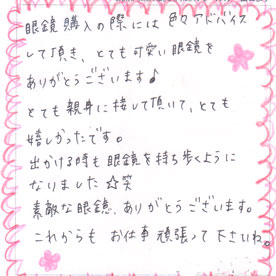 眼鏡購入の際には色々アドバイス
して頂き、とても可愛い眼鏡を
ありがとうございます♪
とても親身に接して頂いて、とても
嬉しかったです。
出かける時も眼鏡を持ち歩くように
なりました☆笑
素敵な眼鏡、ありがとうございます。
これからも お仕事頑張って下さいね。